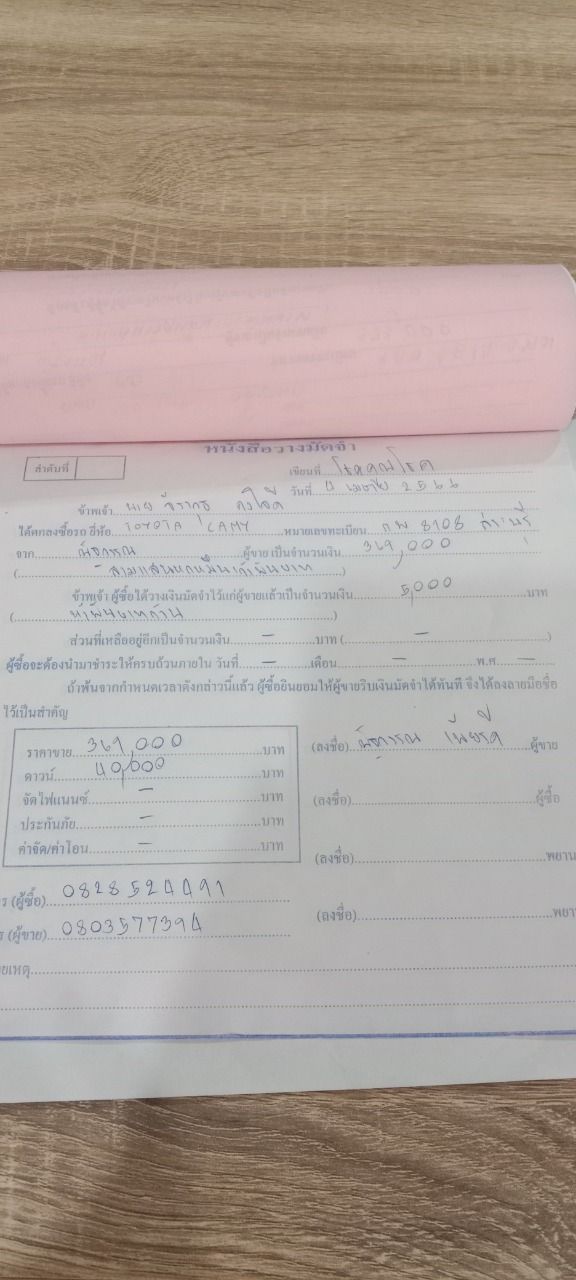 หนังสือวางมัดจำ
ลำดับที่
เขียนที่
วันที่ เมษายน 2566
ข้าพเจ้า นาย
ได้ตกลงซื้อรถ ยี่ห้อ TOYOTA CAMY หมายเลขทะเบียน กพ 8108
จาก ผู้ขาย เป็นจำนวนเงิน 369,000
(สามแสนหกหมื่นเก้าพันบาท)
ข้าพเจ้า ผู้ซื้อได้วางเงินมัดจำไว้แก่ผู้ขายแล้วเป็นจำนวนเงิน 5,000 บาท
(ห้าพันบาทถ้วน)
ส่วนที่เหลืออยู่อีกเป็นจำนวนเงิน - บาท ( - )
ผู้ซื้อจะต้องนำมาชำระให้ครบถ้วนภายใน วันที่ - เดือน - พ.ศ. -
ถ้าพ้นจากกำหนดเวลาดังกล่าวนี้แล้ว ผู้ซื้อยินยอมให้ผู้ขายริบเงินมัดจำได้ทันที จึงได้ลงลายมือชื่อ
ไว้เป็นสำคัญ
ราคาขาย 369,000 บาท
ดาวน์ 40,000 บาท
จัดไฟแนนซ์ - บาท
ประกันภัย - บาท
ค่าจัด/ค่าโอน - บาท
(ลงชื่อ) ผู้ขาย
(ลงชื่อ) ผู้ซื้อ
(ลงชื่อ) พยาน
(ลงชื่อ) พยา
ร (ผู้ซื้อ) 0828524491
ร (ผู้ขาย) 0803577394
ยเหตุ